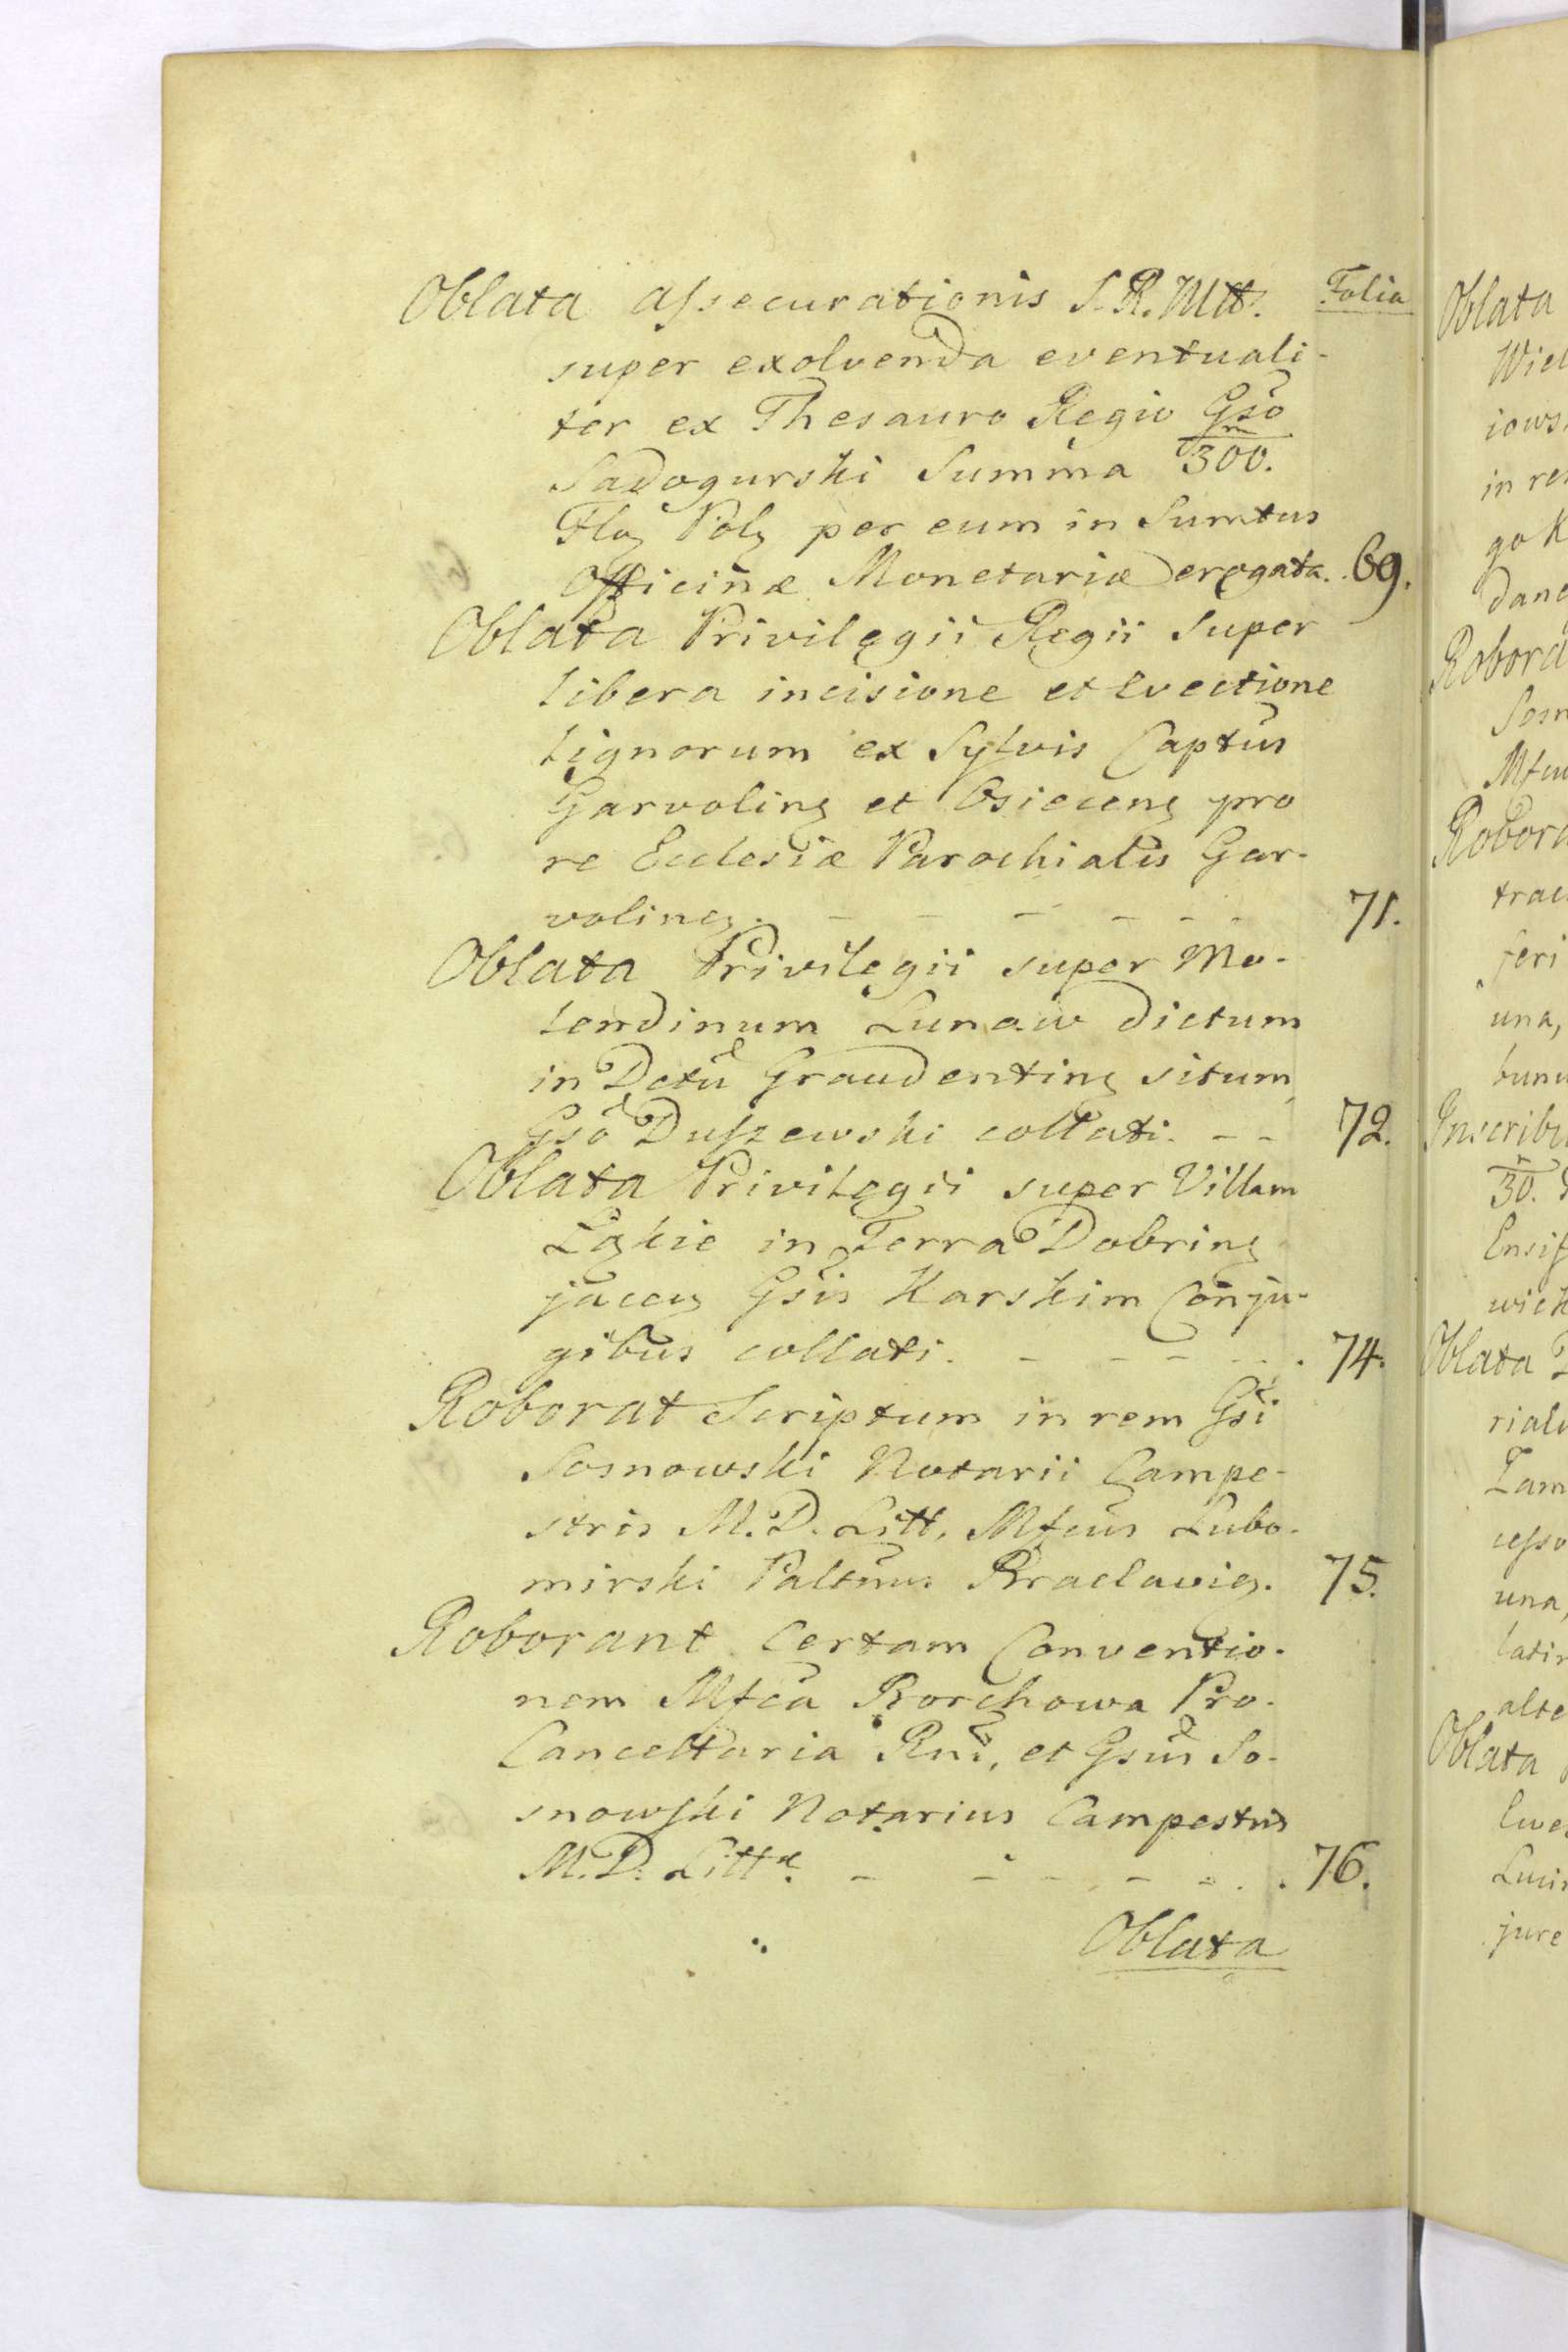 Oblata assecurationis S. R. Mtt. Folia
super exolvenda eventuali-
ter ex Thesauro Regio Gso
Sadogurski Summa 300.
Floz Polz per eum in Sumtus
Officinæ Monetariæ erogata. 69.
Oblata Privilegii Regii super
libera incisione et Evectione
Lignorum ex Sylvis Captus
Garvolinz et Osiecenz pro
re Ecclesiæ Parochialis Gar-
volinez. - - - - - 71.
Oblata Privilegii super Mo-
lendinum Lunaw dictum
in Dctu Graudentinz situm,
Gso Duszewski collati. - - 72.
Oblata Privilegii super Villam
Łąkie in Terra Dobrinz
jacenz Gsis Karskim Conju-
gibus collati. - - - - 74.
Roborat Scriptum in rem Gsi
Sosnowski Notarii Campe-
stris M. D. Litt. Mfcus Lubo-
mirski Paltnus Braclaviez. 75.
Roborant Certam Conventio-
nem Mfca Borchowa Pro-
Cancellaria Rni, et Gsus So-
snowski Notarius Campestris
M. D. Littæ. - - - - - 76.
Oblata
Oblata
Wiel
iows
in re
go K
dane
Robora
Sosn
Mfcu
Robora
trac
feri
una,
bunu
Inscribi
30.
Ensif
wick
Oblata
riale
Tam
cesso
una,
latin
alte
Oblata
Lucin
jure